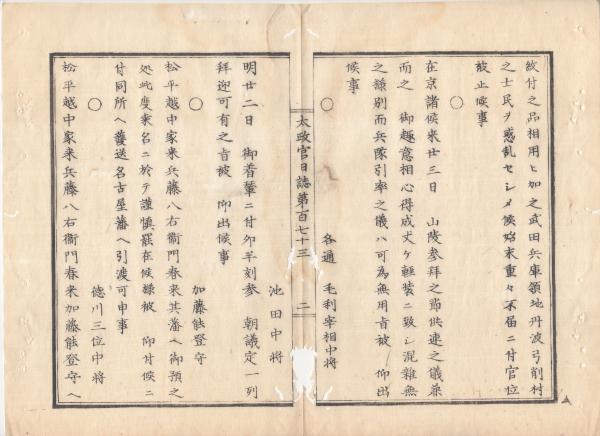 紋付之品相用ヒ加之武田兵庫領地丹波弓削村
之士民ヲ惑乱セシメ候始末重々不届ニ付官位
被止候事
○
在京諸侯来廿三日 山陵参拜之節供連之儀兼
而之 御趣意相心得成丈ケ軽装ニ致シ混雑無
之様別而兵隊引率之儀ハ可為無用旨被 仰出
候事
各通 毛利宰相中将
○
太政官日誌第百七十三 二
池田中将
明廿二日 御着輦ニ付卯半刻参 朝議定一列
拜迎可有之旨被 仰出候事
○
加藤能登守
松平越中家来兵藤八右衞門春来其藩へ御預之
処此度桑名ニ於テ謹慎罷在候様被 仰付候ニ
付同所へ護送名古屋藩へ引渡可申事
○
徳川三位中将
松平越中家来兵藤八右衞門春来加藤能登守へ